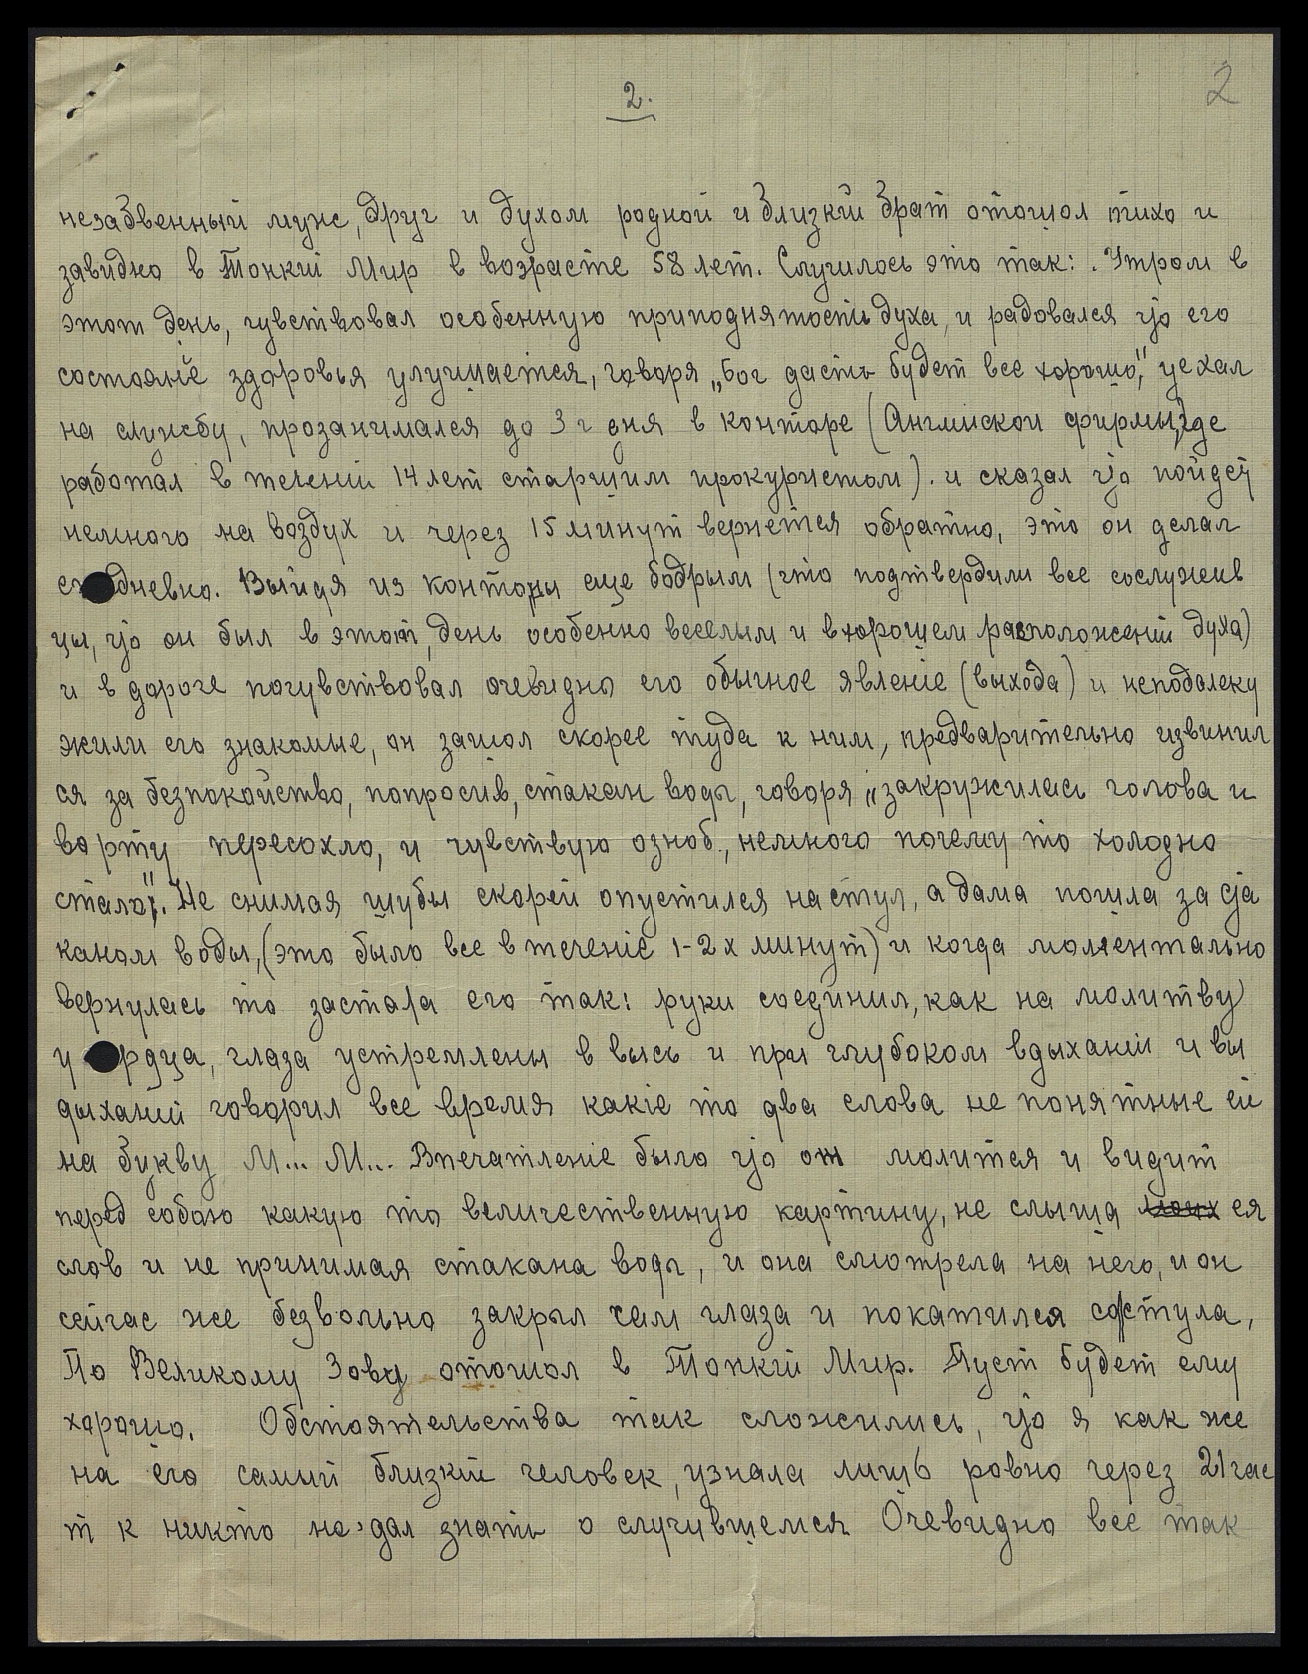 2.
2
незабвенный муж, друг и духом родной и близкій брат отошол тихо и
завидно в Тонкій Мир в возрасте 58 лет. Случилось это так: . Утром в
этот день, чувствовал особенную приподнятость духа, и радовался что его
состояніе здоровья улучшается, говоря „Бог даст будет все хорошо", уехал
на службу, прозанимался до 3 г дня в конторе (Англійской фирмы, где
работал в теченіи 14 лет старшим прокуристом). и сказал что пойдет
немного на воздух и через 15 минут вернется обратно, это он делал
еж дневно. Выйдя из конторы еще бодрым (что подтвердили все сослужив
цы, что он был в этот день особенно веселым и в хорошем расположеніи духа)
и в дороге почувствовал очевидно его обычное явленіе (выхода) и неподалеку
жили его знакомые, он зашол скорее туда к ним, предварительно извинил
ся за безпокойство, попросив, стакан воды, говоря „закружилась голова и
во рту пересохло, и чувствую озноб, немного почему то холодно
стало". Не снимая шубы скорей опустился на стул, а дама пошла за ста
каном воды, (это было все в теченіе 1-2х минут) и когда моментально
вернулась то застала его так: руки соединил, как на молитву
у рдца, глаза устремлены в высь и при глубоком вдыханіи и вы
дыханіи говорил все время какіе то два слова не понятные ей
на букву М... М... Впечатленіе было что он молится и видит
перед собою какую то величественную картину, не слыша моих ея
слов и не принимая стакана воды, и она смотрела на него, и он
сейчас же безвольно закрыл сам глаза и покатился со стула,
По Великому Зову отошол в Тонкій Мир. Пуст будет ему
хорошо. Обстоятельства так сложились, что я как же
на его самый близкій человек, узнала лишь ровно через 21 час
т к никто не дал знать о случившемся Очевидно все так